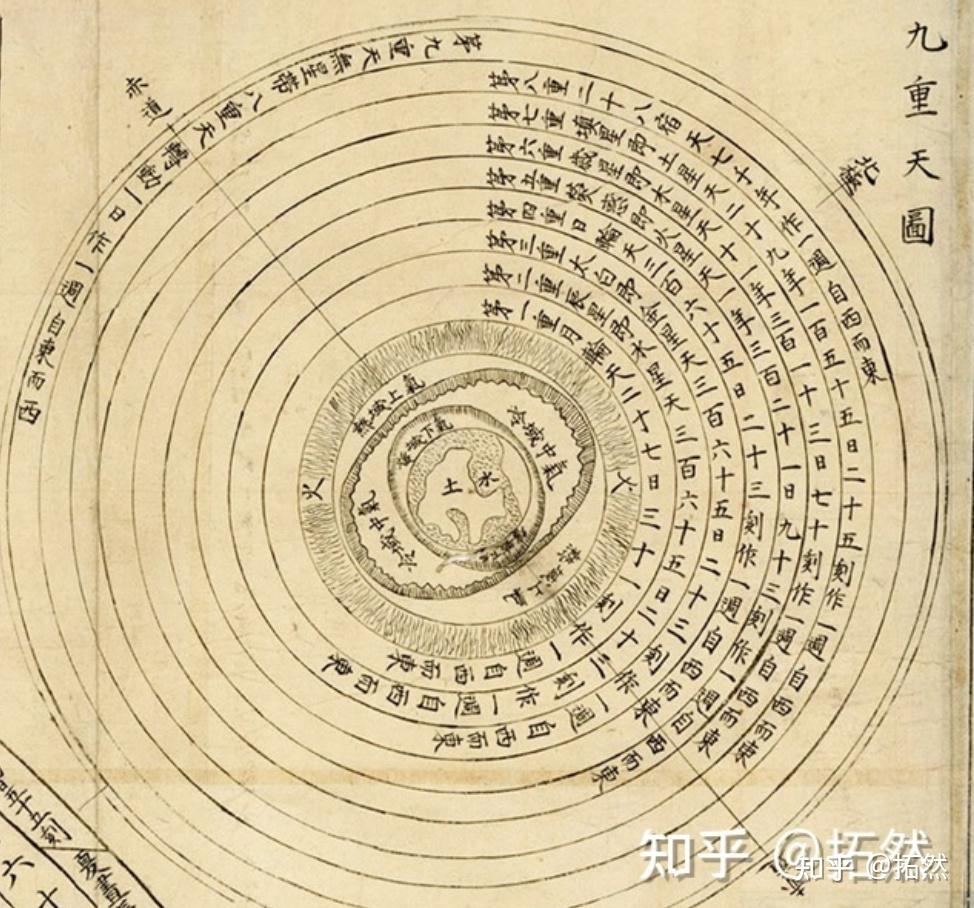 九重天圖
北極
赤道
第九重天無星帶八重天轉動一日作一週自東而西
第八重二十八宿天七十年作一週自西而東
第七重填星即土星天二十九年一百五十五日二十五刻作一週自西而東
第六重歲星即木星天十一年三百一十三日七十刻作一週自西而東
第五重熒惑即火星天一年三百二十一日九十三刻作一週自西而東
第四重日輪天三百六十五日二十三刻作一週自西而東
第三重太白即金星天三百六十五日二十三刻作一週自西而東
第二重辰星即水星天三百六十五日二十三刻作一週自西而東
第一重月輪天二十七日三十一刻作一週自西而東
火
火
熱域上氣
冷域中氣
冷域中氣
熱域上氣
土
水
五十五刻
六十
夏晝
知乎 @拓然
知乎 @拓然